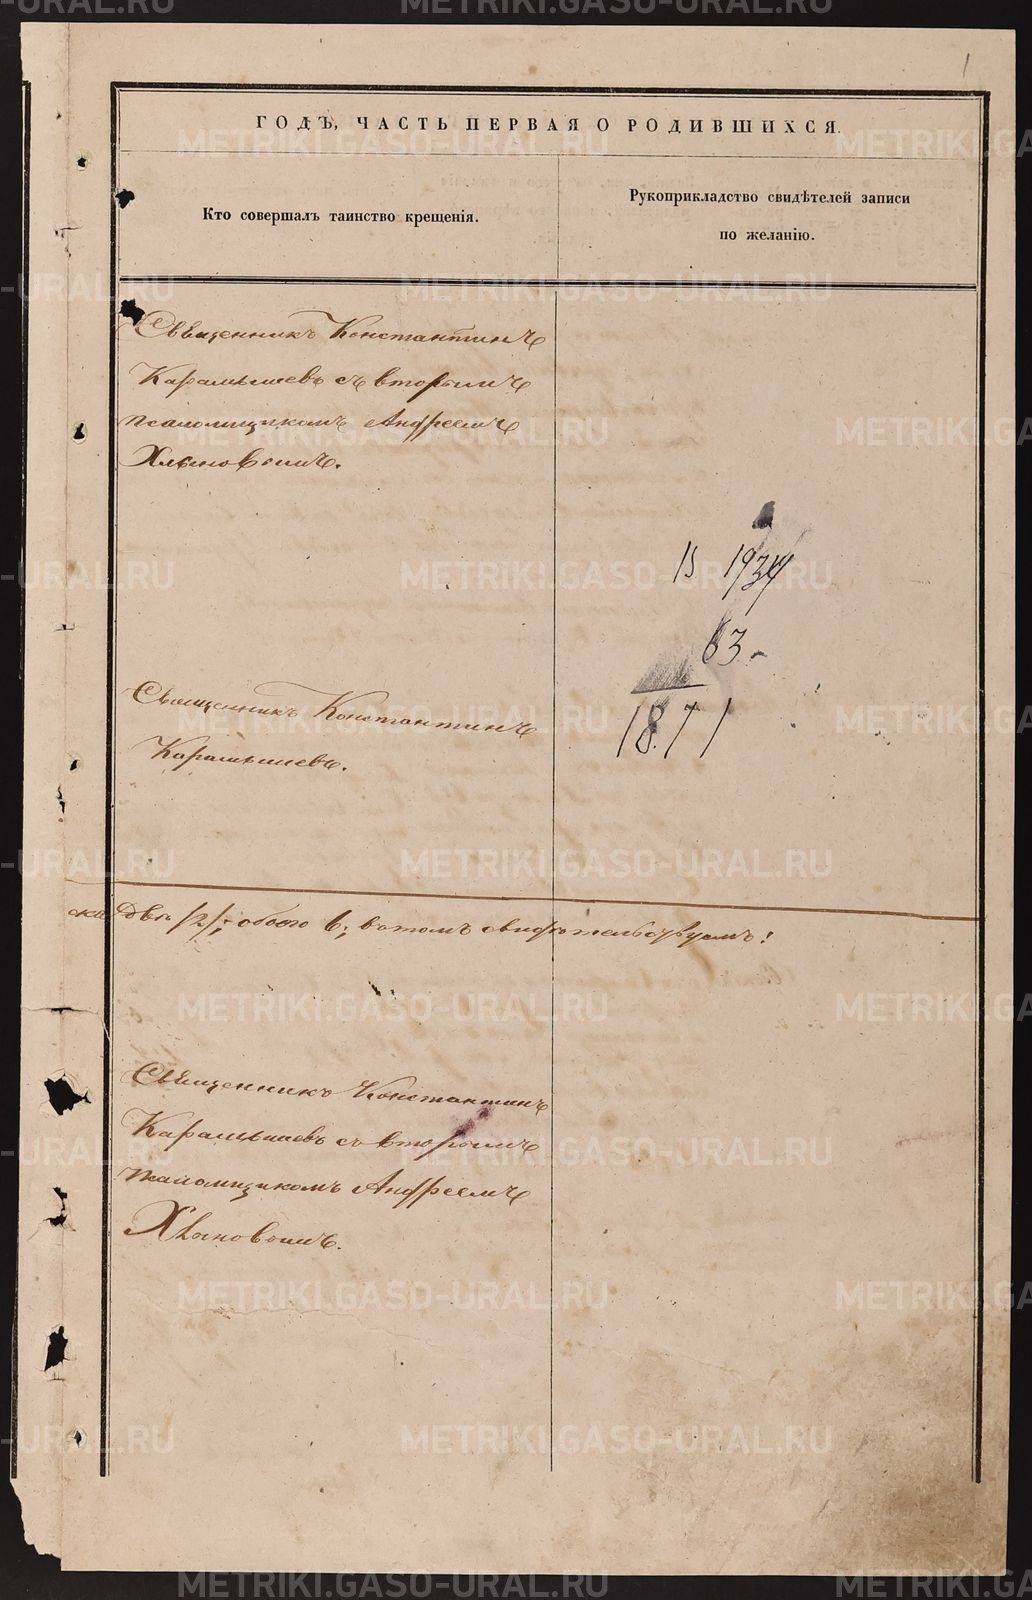 1
ГОДЪ, ЧАСТЬ ПЕРВАЯ О РОДИВШИХСЯ.
Кто совершалъ таинство крещенія.
Рукоприкладство свидѣтелей записи
по желанію.
Священникъ Константинъ
Карамышевъ съ вторымъ
псаломщикомъ Андреемъ
Хлыновымъ.
15 1934
63-
1871
Священникъ Константинъ
Карамышевъ.
два /2/; обоего 6; въ томъ свидѣтельствуемъ!
Священникъ Константинъ
Карамышевъ съ вторымъ
псаломщикомъ Андреемъ
Хлыновымъ.
METRIKI.GASO-URAL.RU